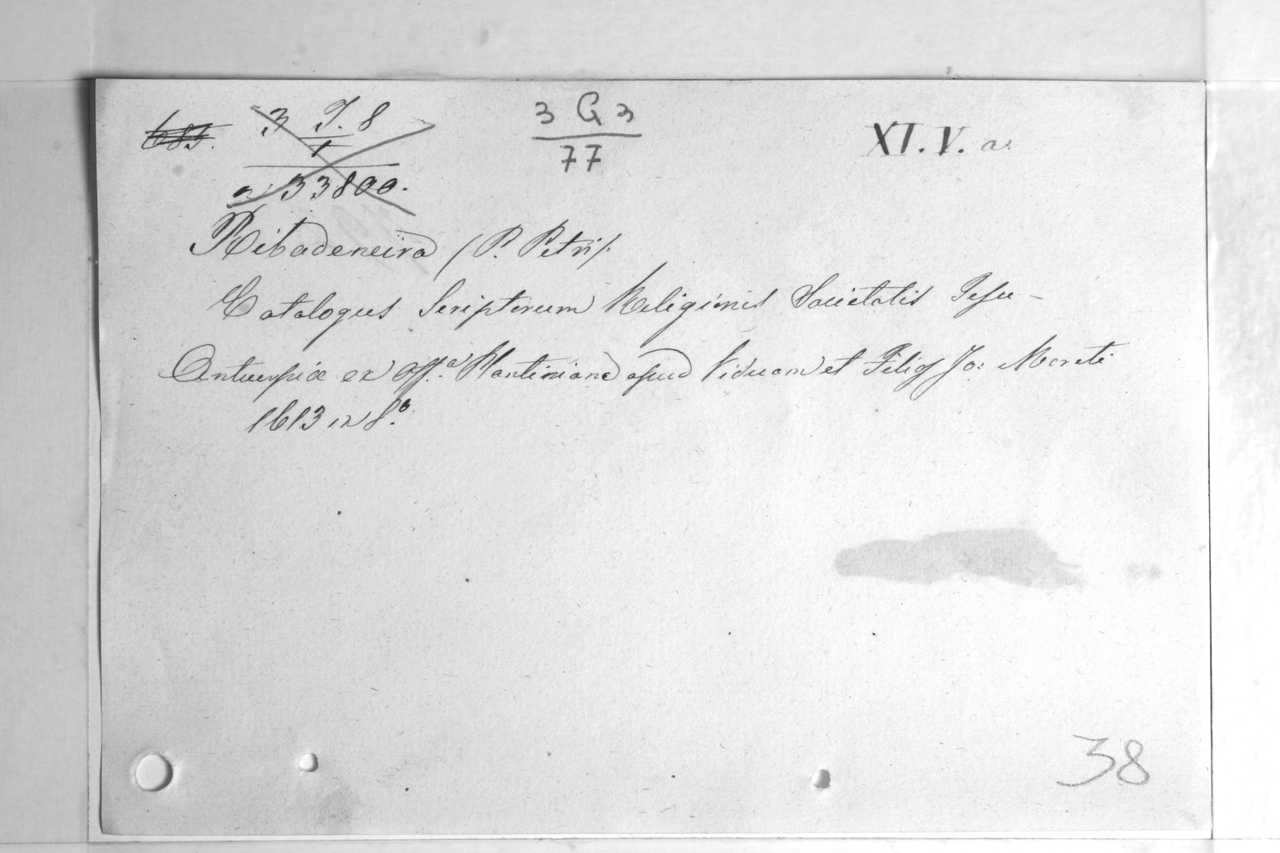 685. 3 J. 8 3 G 3 XI. V. a.
1 77
a 33800.
Ribadeneira (P. Petri).
Catalogus Scriptorum Religionis Societatis Jesu –
Antuerpiæ ex off.ª Plantiniana apud Viduam et Filios Jo: Moreti
1613 in 8.º
38